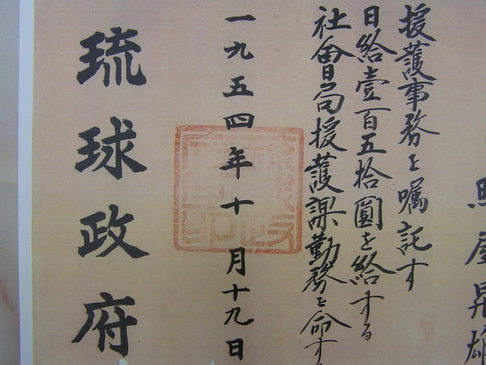 照屋昇雄
援護事務を嘱託す
日給壹百五拾圓を給する
社會局援護課勤務を命す
一九五四年十月十九日
琉球政府